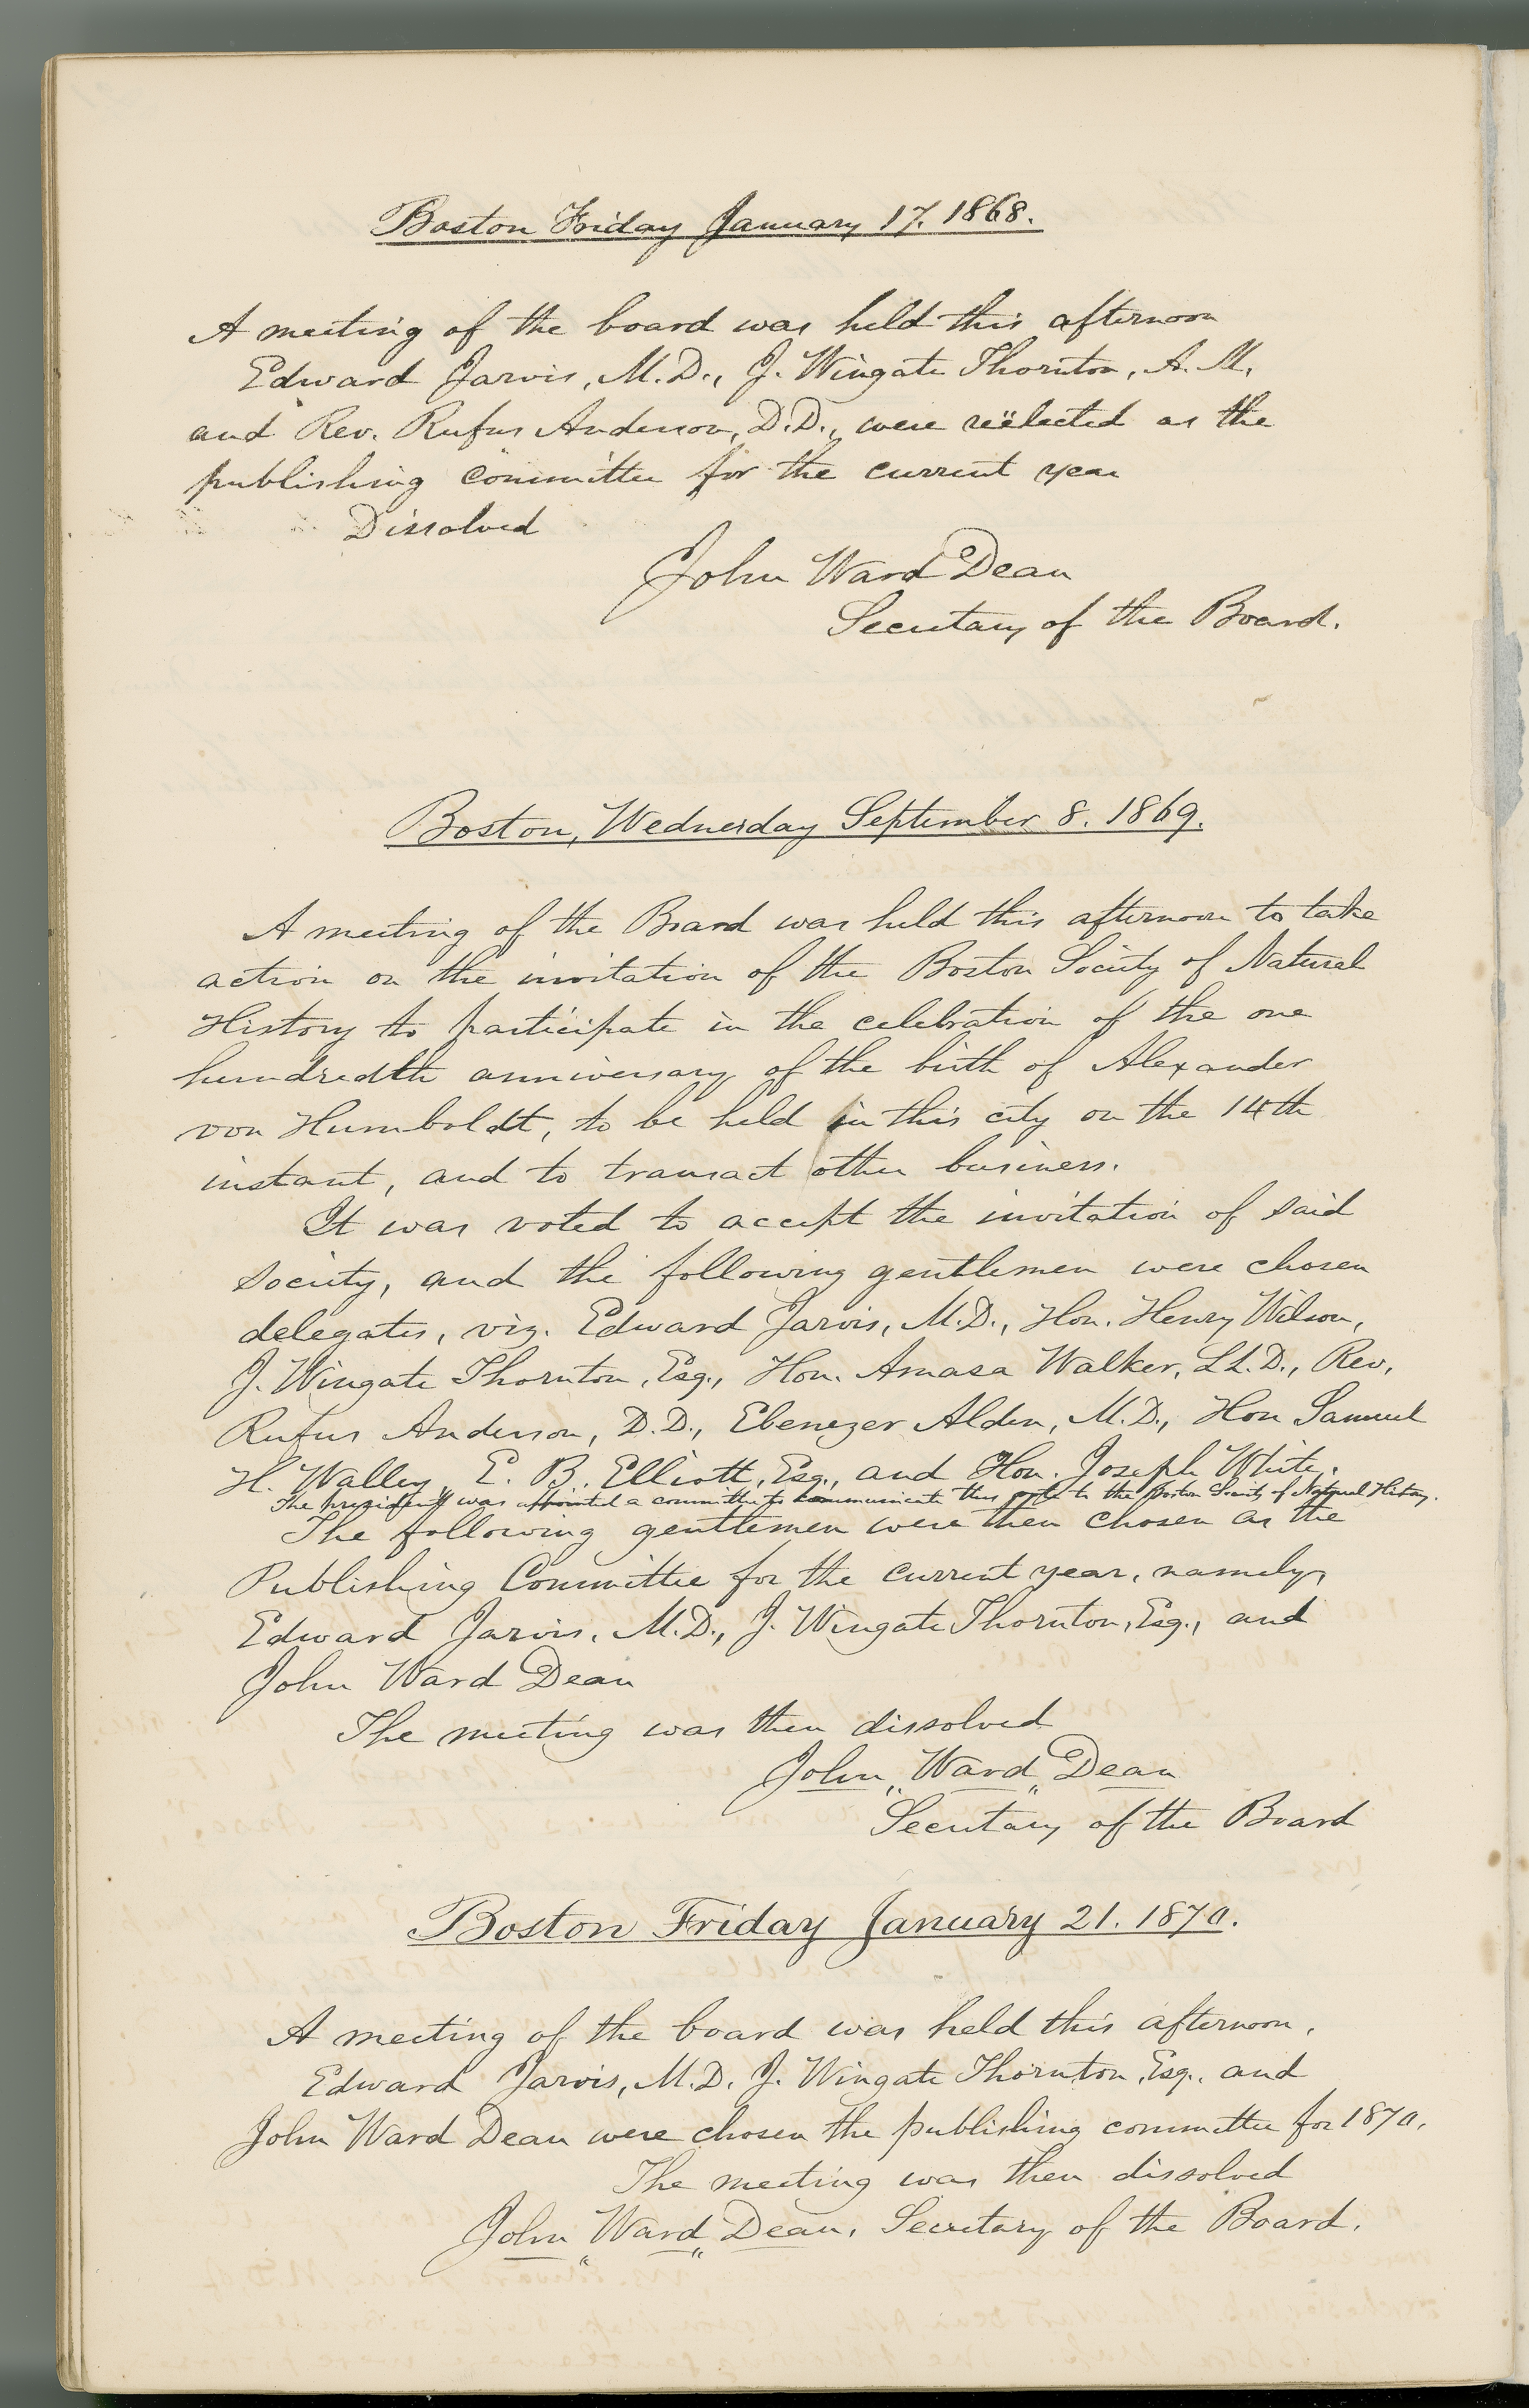 Boston Friday January 17. 1868.
A meeting of the board was held this afternoon
Edward Jarvis, M.D., J. Wingate Thornton, A.M.
and Rev. Rufus Anderson, D.D., were reëlected as the
publishing committee for the current year
Dissolved
John Ward Dean
Secretary of the Board.
Boston, Wednesday September 8. 1869.
A meeting of the Board was held this afternoon to take
action on the invitation of the Boston Society of Natural
History to participate in the celebration of the one
hundredth anniversary of the birth of Alexander
von Humboldt, to be held in this city on the 14th
instant, and to transact other business.
It was voted to accept the invitation of said
society, and the following gentlemen were chosen
delegates, viz. Edward Jarvis, M.D., Hon. Henry Wilson,
J. Wingate Thornton, Esq., Hon. Amasa Walker, LL.D., Rev.
Rufus Anderson, D.D., Ebenezer Alden, M.D., Hon Samuel
H. Walley, E. B. Elliott, Esq., and Hon. Joseph White.
The president was appointed a committee to communicate this vote to the Boston Society of Natural History.
The following gentlemen were then chosen as the
Publishing Committee for the current year, namely,
Edward Jarvis, M.D., J. Wingate Thornton, Esq., and
John Ward Dean
The meeting was then dissolved
John Ward Dean
Secretary of the Board
Boston Friday January 21. 1870.
A meeting of the board was held this afternoon.
Edward Jarvis, M.D. J. Wingate Thornton, Esq., and
John Ward Dean were chosen the publishing committee for 1870.
The meeting was then dissolved
John Ward Dean, Secretary of the Board.